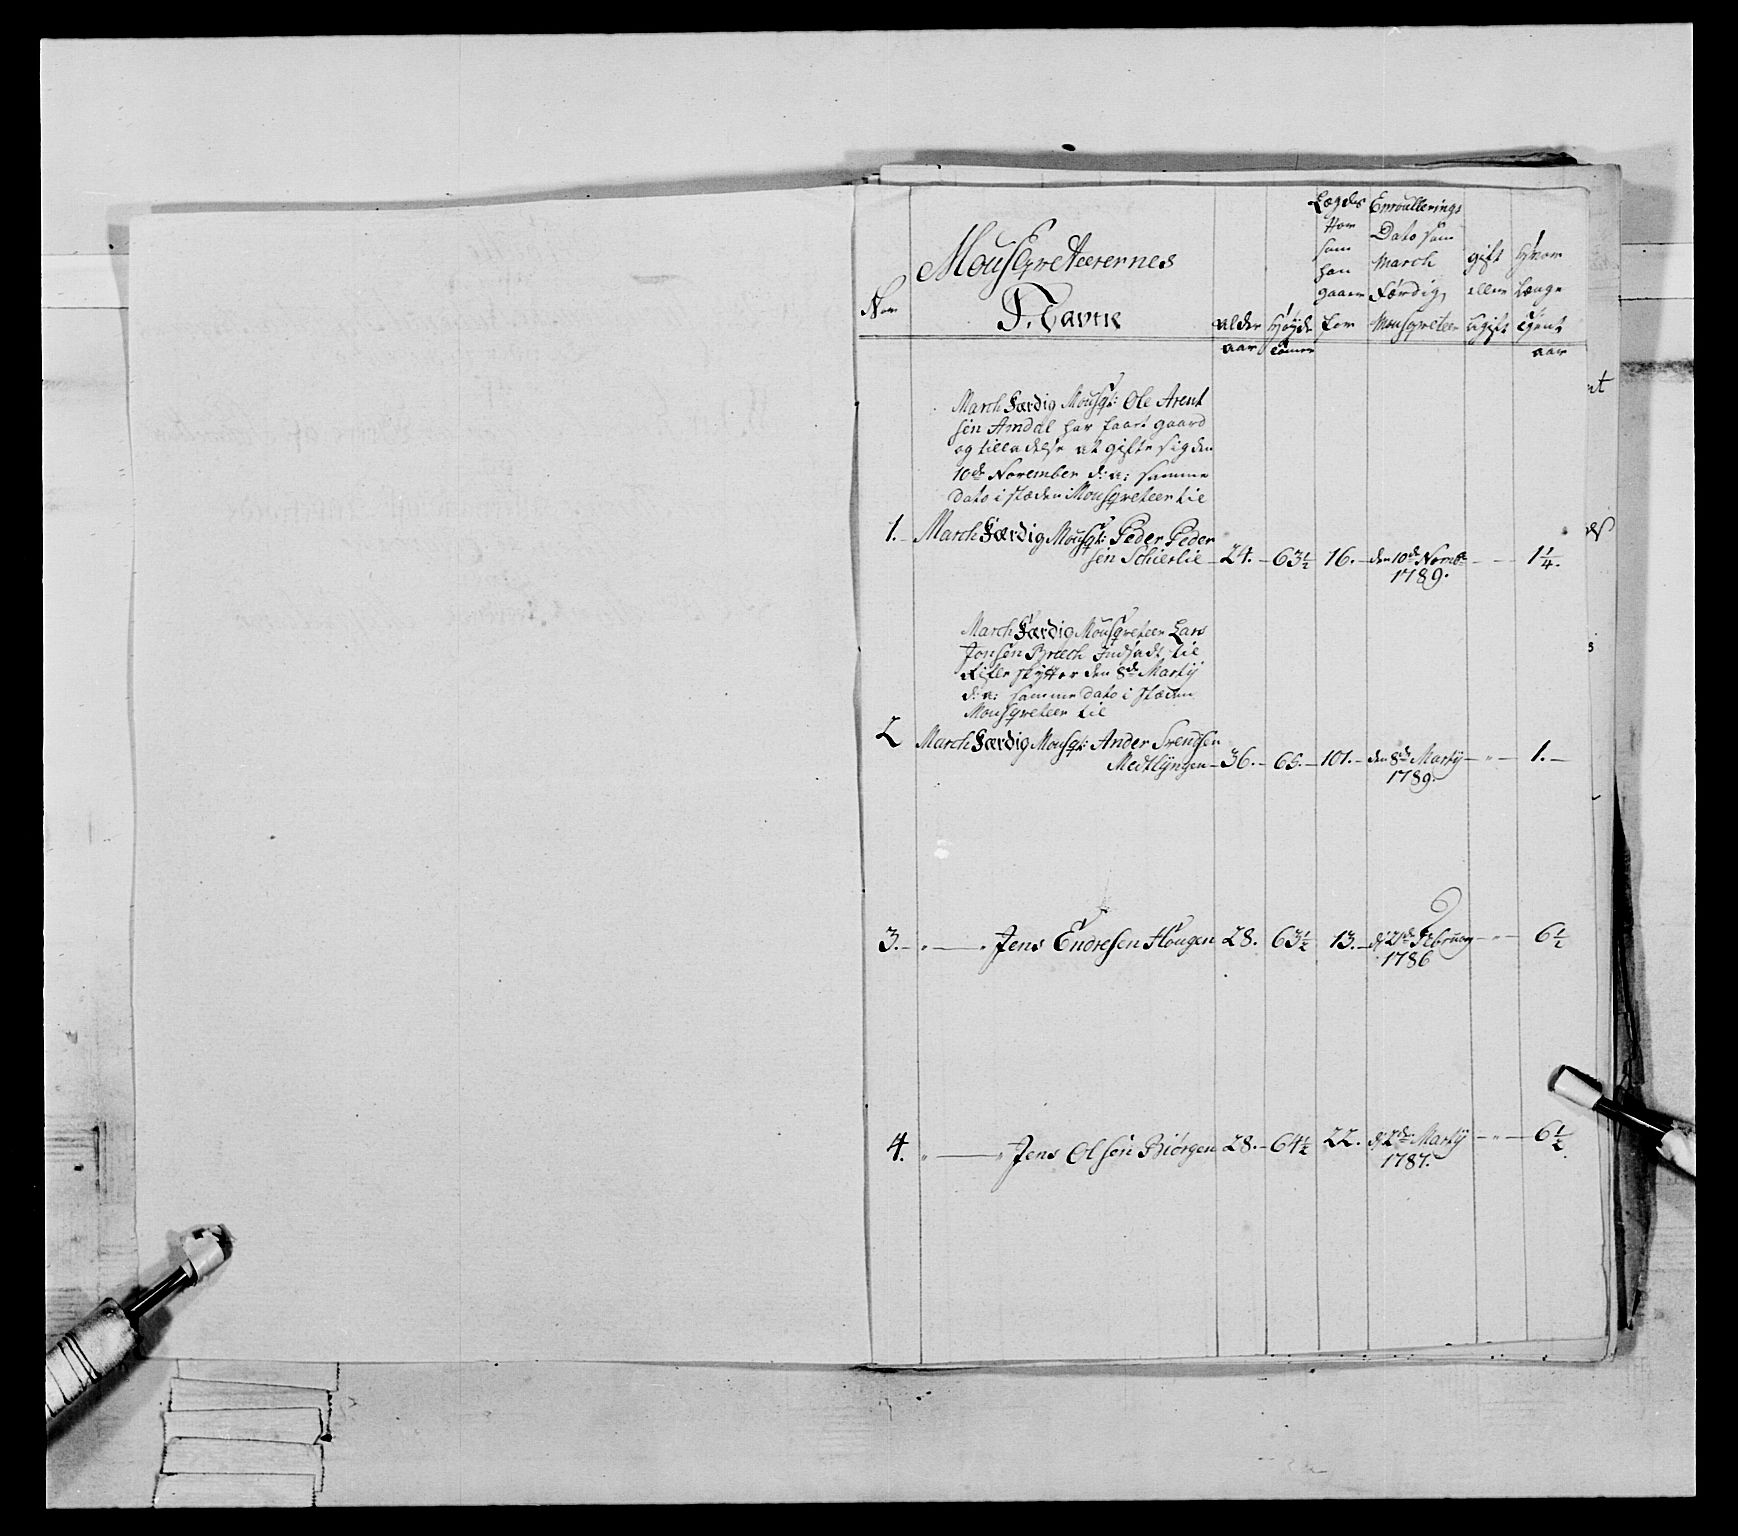 Nor
Mousqveteerernes
Navne
alder
aar
Høyde
tomer
Lægds
Nor
som
han
gaaer
for
Enroullerings
Dato som
March
Færdig
Mousqveteer
gift
eller
ugift
Hvor
længe
tient
aar
March Færdig Mousqt: Ole Arent
sen Amdal har faaet gaard
og tilladelse at gifte sig den
10de November d: a: samme
Dato i stæden Mousqveteer til
1. March Færdig Mousqt: Peder Peder
sen Schierlie 24. 63½ 16. den 10de Novbr 1¼.
1789.
March Færdig Mousqveteer Lars
Jonsen Bræch Indsadt til
skytter den 8de Martij
d: a: samme Dato i stæden
Mousqveteer til
2 March Færdig Mousqt: Ander Svendsen
Medtlÿngen 36. 65. 101. den 8de Martij " 1.
1789.
3. " " Jens Endresen Hougen 28. 63½ 13. d: 21de Februar " 6½
1786
4. " " Jens Olsen Biørgen 28. 64½ 22. d: 2de Martij " 6½
1787.